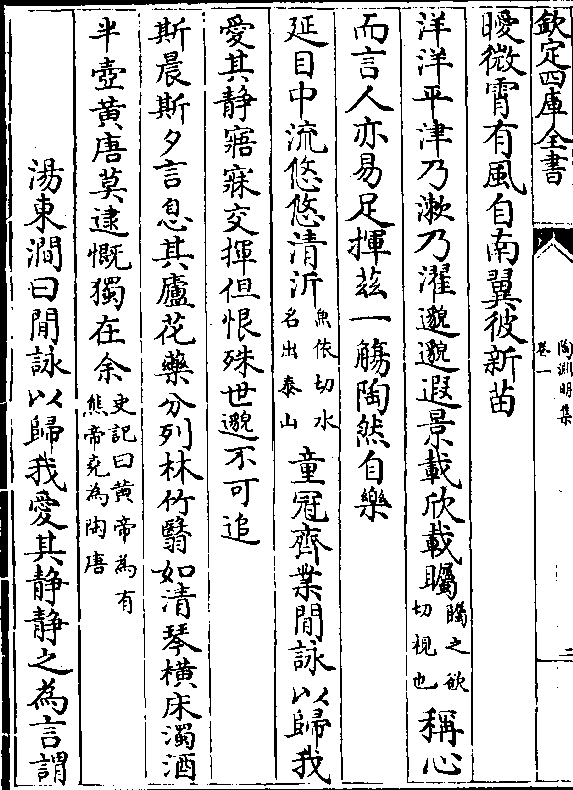 欽定四庫全書
陶淵明集
卷一
二
曖微霄有風自南翼彼新苗
洋洋平津乃漱乃濯邈邈遐景載欣載矚矚之欲
切視也稱心
而言人亦易足揮兹一觴陶然自樂
延目中流悠悠清沂魚依切水
名出泰山童冠齊業閒詠以歸我
愛其静寤寐交揮但恨殊世邈不可追
斯晨斯夕言息其廬花藥分列林竹翳如清琴横床濁酒
半壺黄唐莫逮慨獨在余史記曰黄帝為有
熊帝堯為陶唐
湯東澗曰閒詠以歸我愛其静静之為言謂